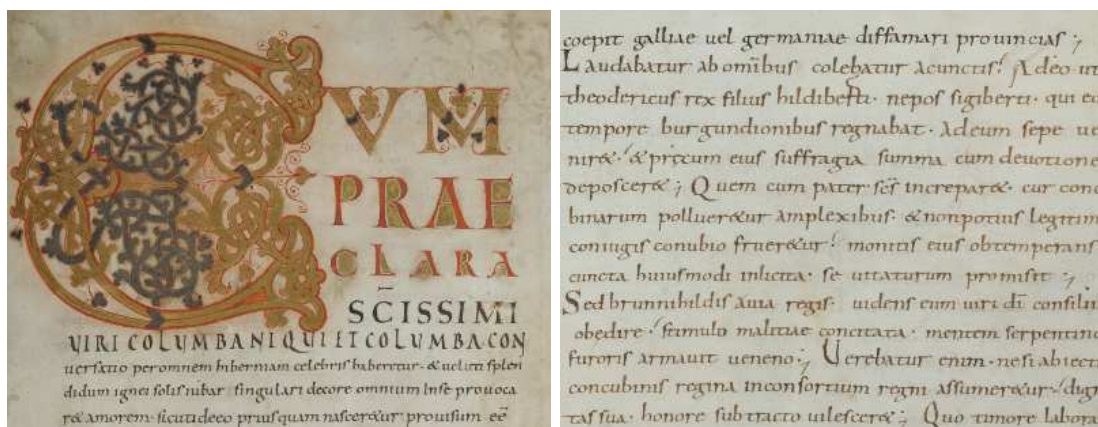 CUM
PRAE
CLARA
SC̄ISSIMI
UIRI COLUMBANI QUI ET COLUMBA CON
uersatio per omnem hiberniam celebris haberetur · & veluti splen
didum ignei solis iubar singulari decore omnium Inse prouoca
r& amorem · sicut ideeo priusquam nascer&ur prouisum eē
coepit galliae uel germaniae diffamari prouincias ;
Laudabatur ab omībus colebatur acunctis · Adeo ut
theodericus rex filius hildiberti · nepos sigiberti · qui eo
tempore burgundionibus regnabat · Adeum sepe ue
nir& · & p̄cum eius suffragia summa cum deuotione
deposcer& ; Quem cum pater sc̄s increpar& · cur conc
binarum polluer&ur amplexibus · & nonpotius legitim
coniugis conubio fruer&ur · monitis eius obtemperans
cuncta huiusmodi inlicita · se uitaturum promisit ;
Sed brunnihildis auia regis · uidens eum uiri dī consiliis
obedire · stimulo malitiae concitata · mentem serpentino
furoris armauit ueneno ; Verebatur enim · nesi abiecti
concubinis regina inconsortium regni assumer&ur · dign
tas sua · honore subtracto uilescer& ; Quo timore labora